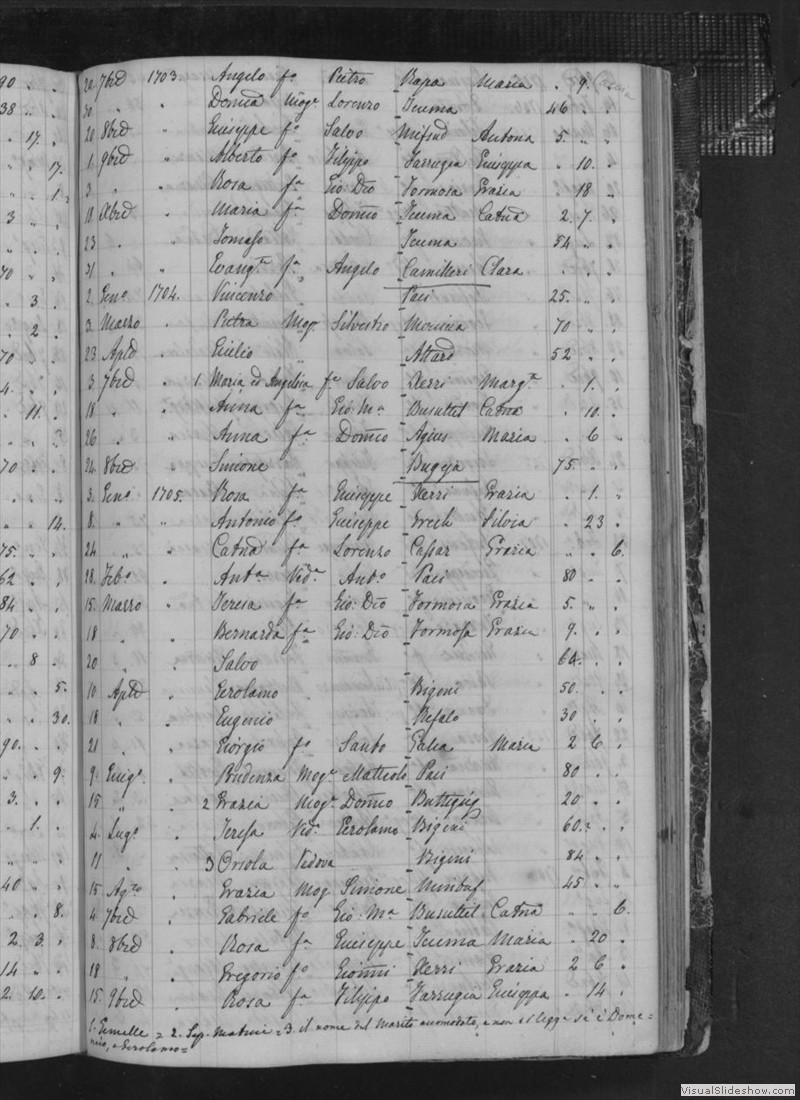 90
38 " .
. 17.
" 17.
" " 1.
3 " .
70 . .
. 3 .
. 2 .
70 . .
4. . .
. 11. .
. . 3
70 . .
" " 14.
75. " .
62 . .
84 . .
70 . .
. 8 .
. . 5.
. . 30.
90. . .
. . 9.
3. . .
. 1. .
40 . .
. . 8.
2. 3. .
14 " .
2. 10. .
20 7brē 1703 Angelo fo Pietro Rapa Maria . 9.
30 " . Domca Moge Lorenzo Tcuma 46 . .
20 8brē " Giuseppe fo Salvo Mifsud Antona 5. " "
1. 9brē " Alberto fo Filippo Farrugia Giuseppa . 10. .
3 " . Rosa fa Gio: Dio Formosa Grazia . 18 "
18 Xbrē . Maria fa Domco Tcuma Catna 2. 7. .
23 . " Tomaso Tcuma 54 . .
31 " " Evangta fa Angelo Camilleri Clara . . .
2. Geno 1704. Vincenzo " Paci 25. " .
3. Marzo . Pietra Moge Silvestro Mercieca 70 " .
23 Aplē . Giulio " Attard 52 . .
3 7brē . 1. Maria ed Angelica fe Salvo Xerri Margta . 1. .
18 " . Anna fa Gio: Ma Busuttel Catna . 10. .
26 . " Anna fa Domco Agius Maria . 6 .
24 8brē " Simione " Bugeja 75. . .
3. Geno 1705. Rosa fa Giuseppe Xerri Grazia . 1. "
8. " " Antonio fo Giuseppe Grech Silvia . 23 .
24 " " Catna fa Lorenzo Cassar Grazia " . 6.
28. Febo . Anta Veda Anto Paci 80 . .
15. Marzo . Teresa fa Gio: Dio Formosa Grazia 5. " .
18 " . Bernarda fa Gio: Dio Formosa Grazia 9. . .
20 " . Salvo 64. . .
10 Aplē . Gerolamo . Bigeni 50. . .
18 . . Eugenio Refalo 30 . .
21 " . Giorgio fo Santo Galea Maria 2 6 .
9. Giugo . Prudenza Moge Matteolo Paci 80 . .
15 " . 2 Grazia Moge Domco Buttigieg 20 . .
4. Lugo . Teresa Veda Gerolamo Bigeni 60. . .
11 " . 3 Orsola Vedova Bigeni 84 . .
15 Agto . Grazia Moge Simione 45 . "
4. 7brē . Gabriele fo Gio: Ma Busuttel Catna " " 6.
8. 8brē . Rosa fa Giuseppe Tcuma Maria . 20 .
18 " . Gregorio fo Gionni Xerri Grazia 2 6 .
15. 9brē . Rosa fa Filippo Farrugia Giuseppa . 14 .
1. Gemelle = 2. Sep. Matrici = 3. il nome del Marito accomodato, e non si legge se è Dome=
nico, o Gerolamo=
VisualSlideshow.com